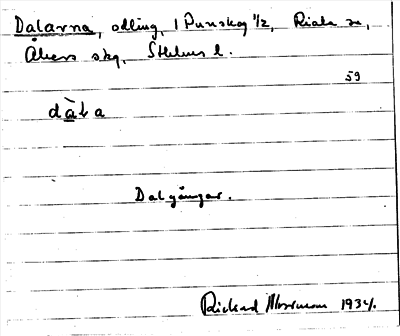 Dalarna, odling, i Punskog 1/2, Riala sn,
Åkers skg, Sthlms l.
59
dàla
Dalgångar.
Rickard 1934.